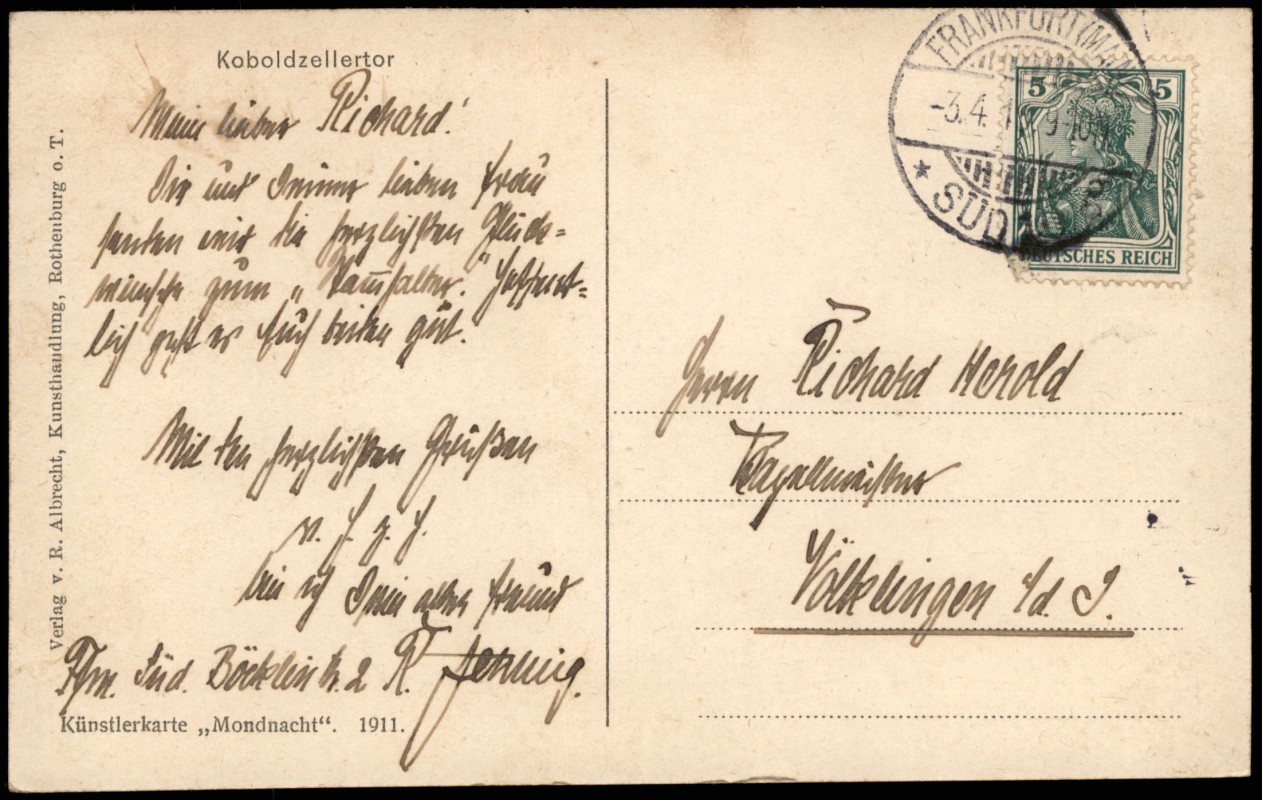 Koboldzellertor
Mein lieber Richard!
Dir und Deiner lieben Frau
senden wir die herzlichsten Glück=
wünsche zum „Stammhalter." Hoffent=
lich geht es Euch beiden gut.
Mit den herzlichsten Grüßen
bin ich Dein alter Freund
Ffm. Süd. Böcklinstr. 2 R.
Künstlerkarte „Mondnacht“. 1911.
Verlag v. R. Albrecht, Kunsthandlung, Rothenburg o. T.
FRANKFURT (MAIN)
-3.4.
* SÜD 10
5 5
DEUTSCHES REICH
Herrn Richard Herold
Kapellmeister
Völklingen a/d. S.